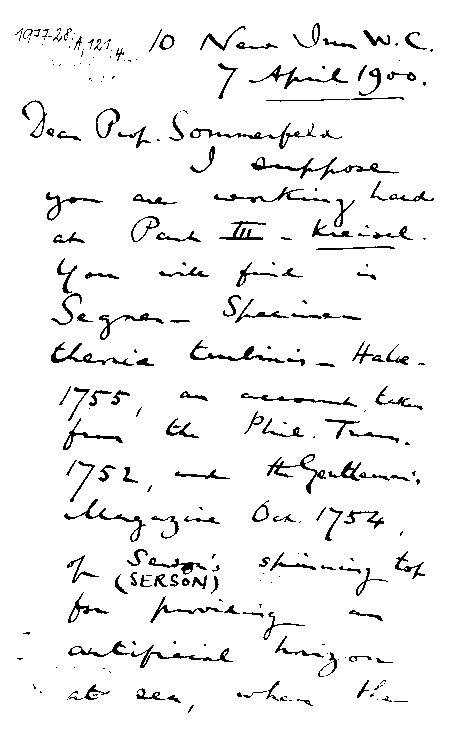 1977-28/A,121,4
10 New Inn W.C.
7 April 1900.
Dear Prof. Sommerfeld
I suppose
you are working hard
at Part III - Kreisel.
You will find in
Segner - Specimen
theoriae turbinis - Halae -
1755, an account, taken
from the Phil. Trans.
1752, and the Gentleman's
Magazine Oct. 1754,
of Serson's spinning top
(SERSON)
for providing an
artificial horizon
at sea, when the